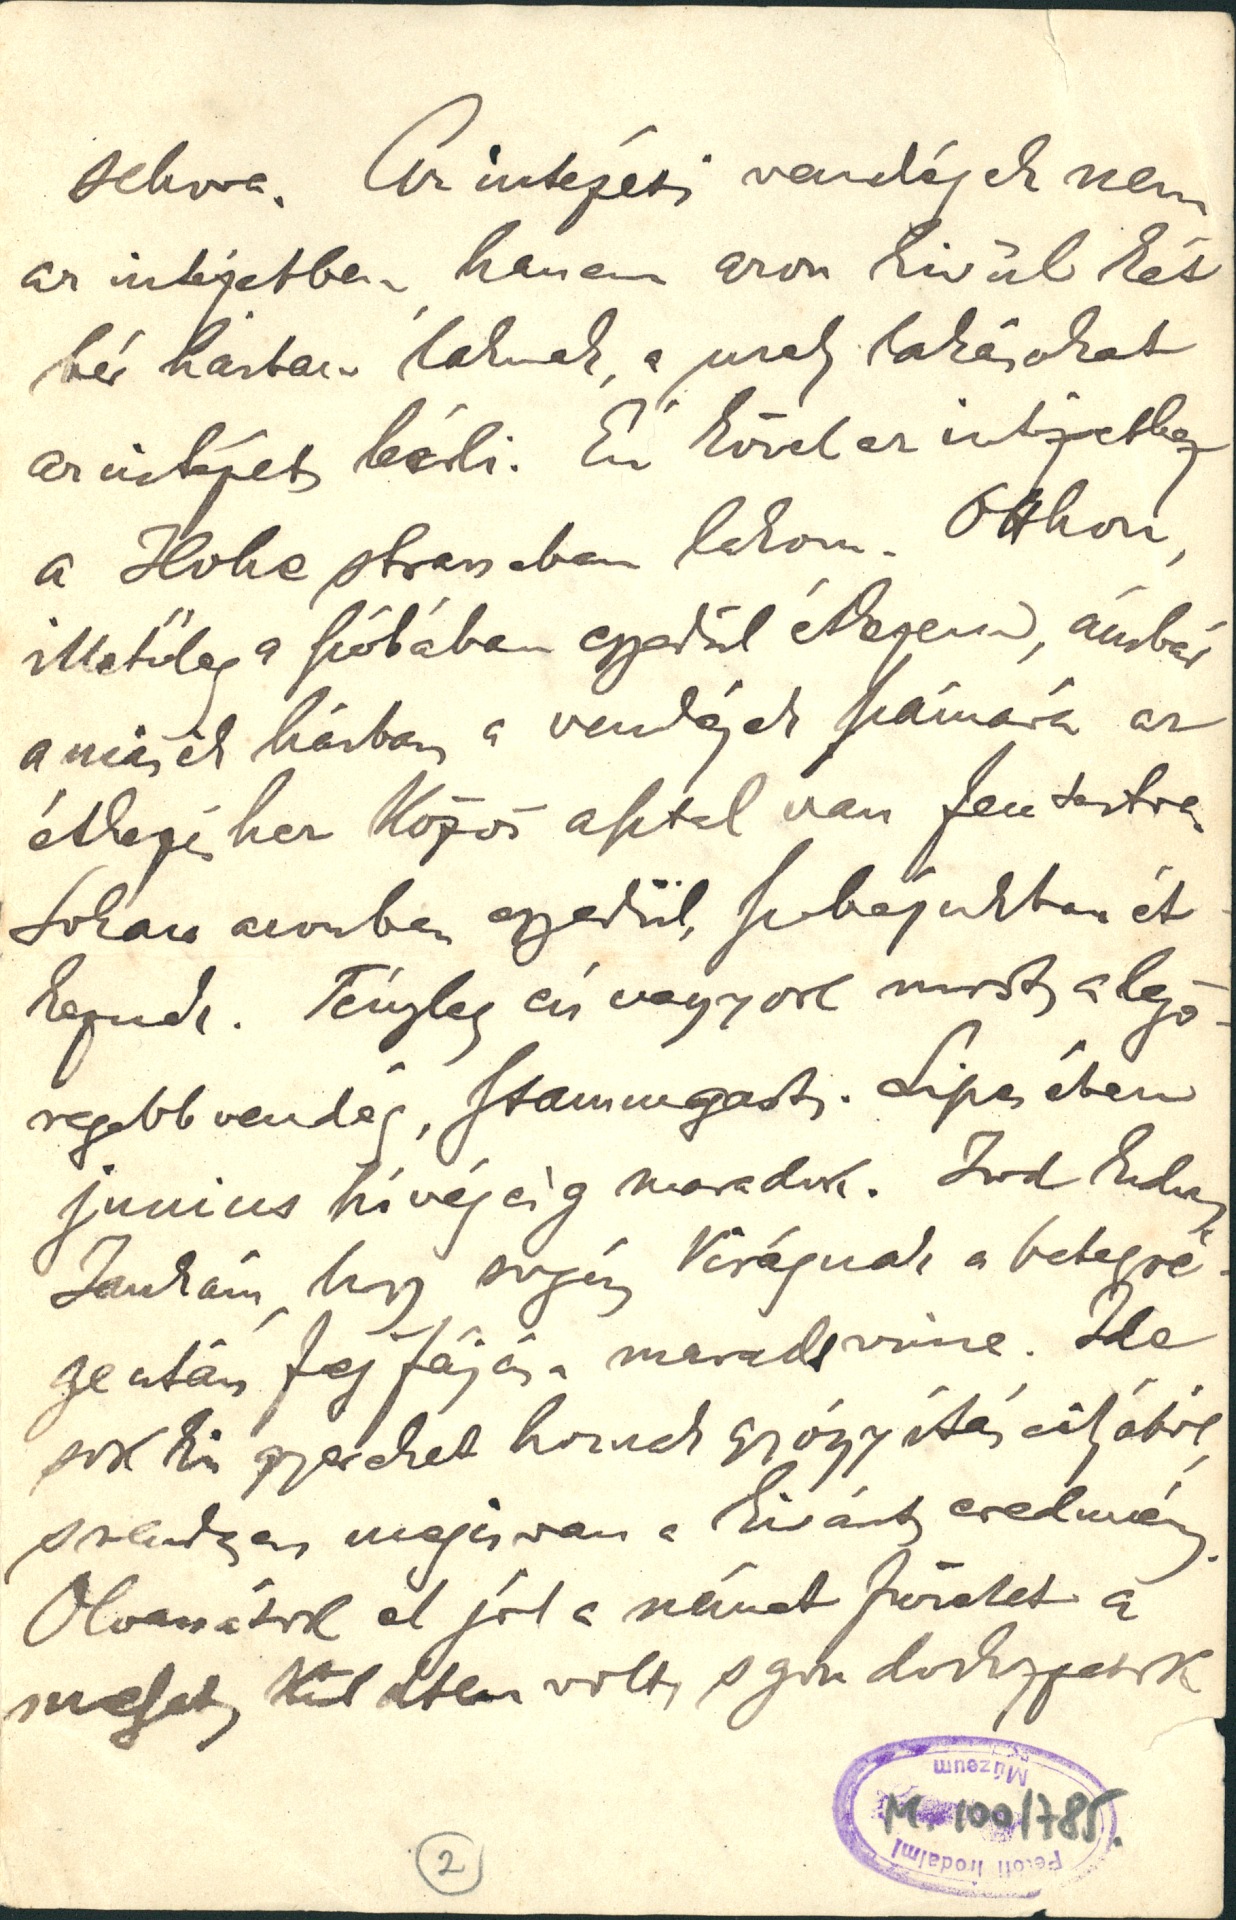 sehova. Az intézeti vendégek nem
az intézetben, hanem azon kivül két
bér házban laknak, a mely lakásokat
az intézet bérli. Én közel az intézethez
a Hohe strasseban lakom. Otthon,
illetőleg a szobában egyedül étkezem, ámbár
a másik házban a vendégek számára az
étkezéshez közös asztal van fentartva.
Sokan azonban egyedül, szobájukban ét-
keznek. Tényleg én vagyok most a legö-
regebb vendég, Stammgast. Lipcsében
junius hó végéig maradok. Irod
Jankám, hogy szegény Virágnak a betegsé-
ge után fejfájása maradt vissza. Ide
sok kis gyereket hoznak gyógyítás céljából,
s rendesen meg is van a kivánt eredmény.
Olvassátok el jól a német füzetet a
melyet küldtem volt, s gondolkozzatok
2
Petőfi Irodalmi
Múzeum
M. 100/785.